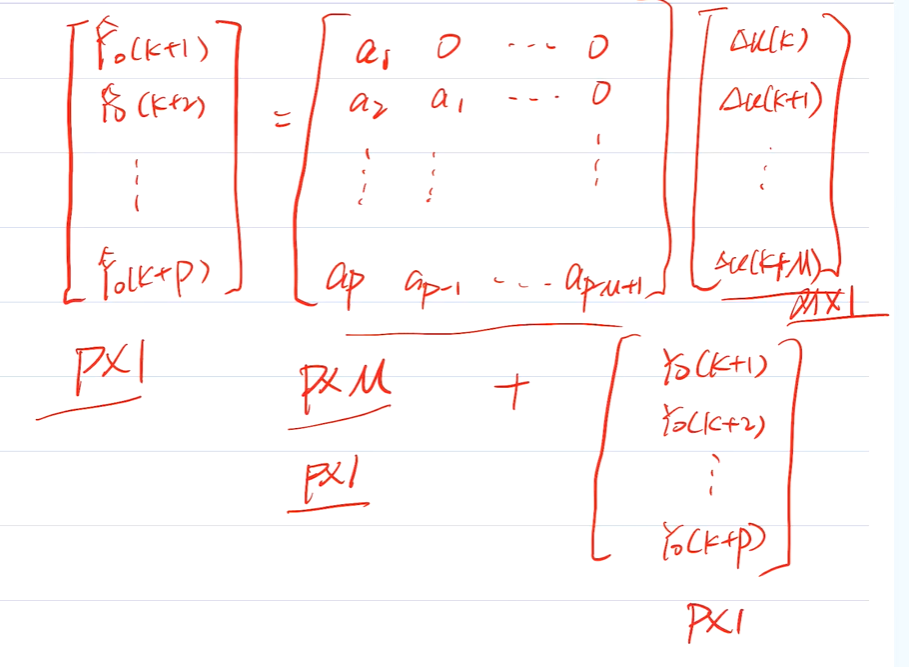 [Ŷ₀(k+1) Ŷ₀(k+2) ⋮ Ŷ₀(k+p)] = [a₁ 0 --- 0 a₂ a₁ --- 0 ⋮ ⋮ ⋮ aₚ aₚ₋₁ --- a_{p-M+1}] [Δu(k) Δu(k+1) ⋮ Δu(k+M)]
M×1
P×1
P×M
+ [Y₀(k+1) Y₀(k+2) ⋮ Y₀(k+p)]
P×1
P×1